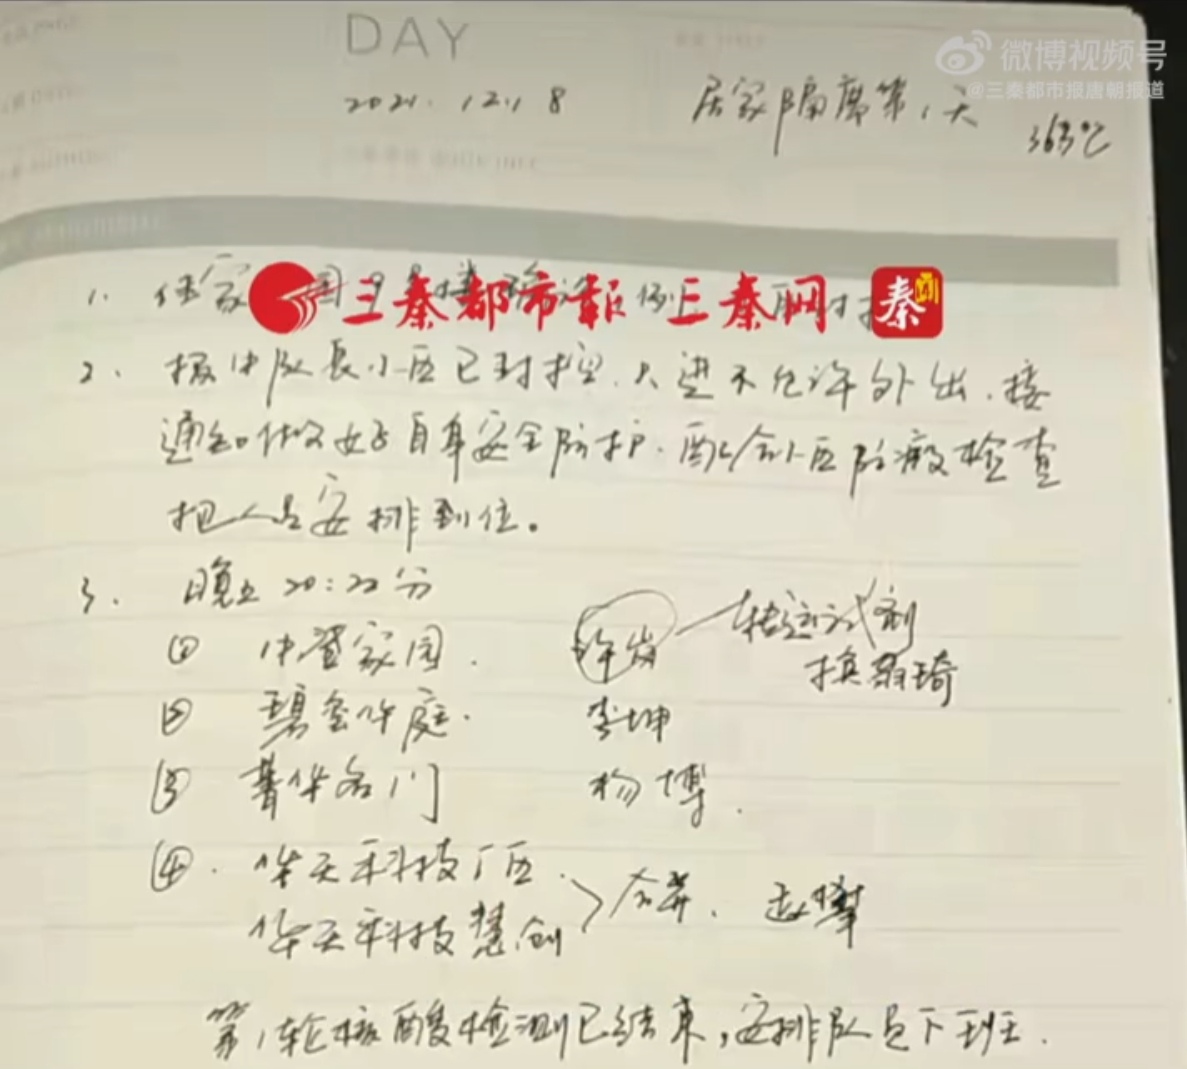 DAY
微博视频号
@三秦都市报唐朝报道
2021.12.18
居家隔离第1天
36.5℃
1. 三秦都市报 三秦网 秦
2. 报中队长小区已封控.人进不允许外出.接
通知做好自身安全防护.配合小区防疫检查
把人员安排到位。
3. 晚上20:22分
① 中贸家园. 许岗 转运试剂
换 琦
② 碧 华庭. 李坤
③ 菁华名门 杨博.
④. 华天科技厂区.
华天科技慧创 合并. 赵攀
第1轮核酸检测已结束,安排队员下班.